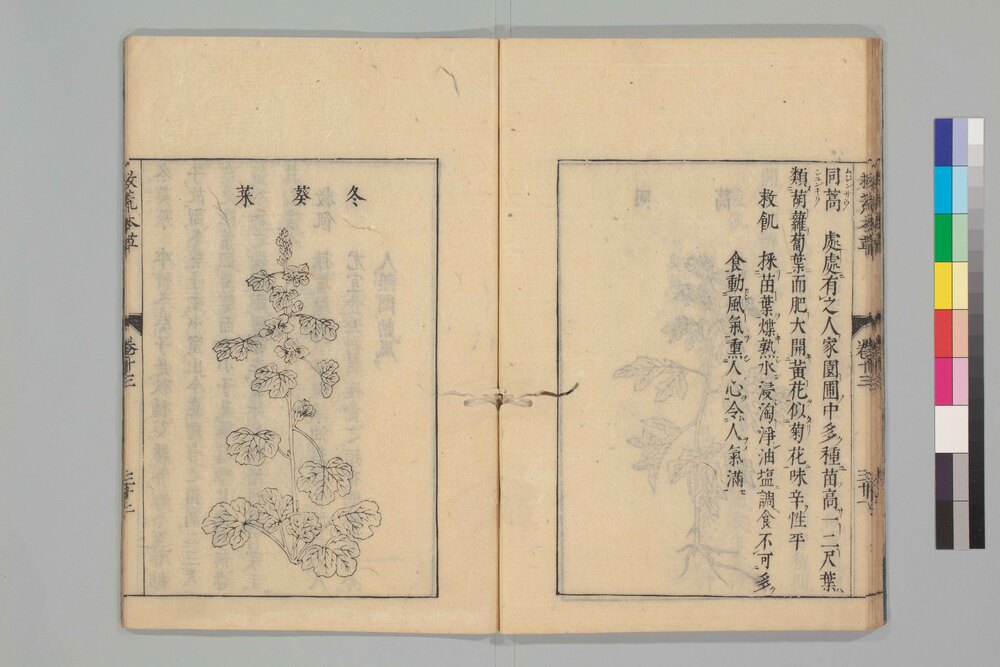 同蒿 處處有之人家園圃中多種苗高一二尺葉
類葫蘿蔔葉而肥大開黃花似菊花味辛性平
救飢 採苗葉煠熟水浸淘淨油塩調食不可多
食動風氣熏人心令人氣滿
冬葵菜
救荒本草
卷十三